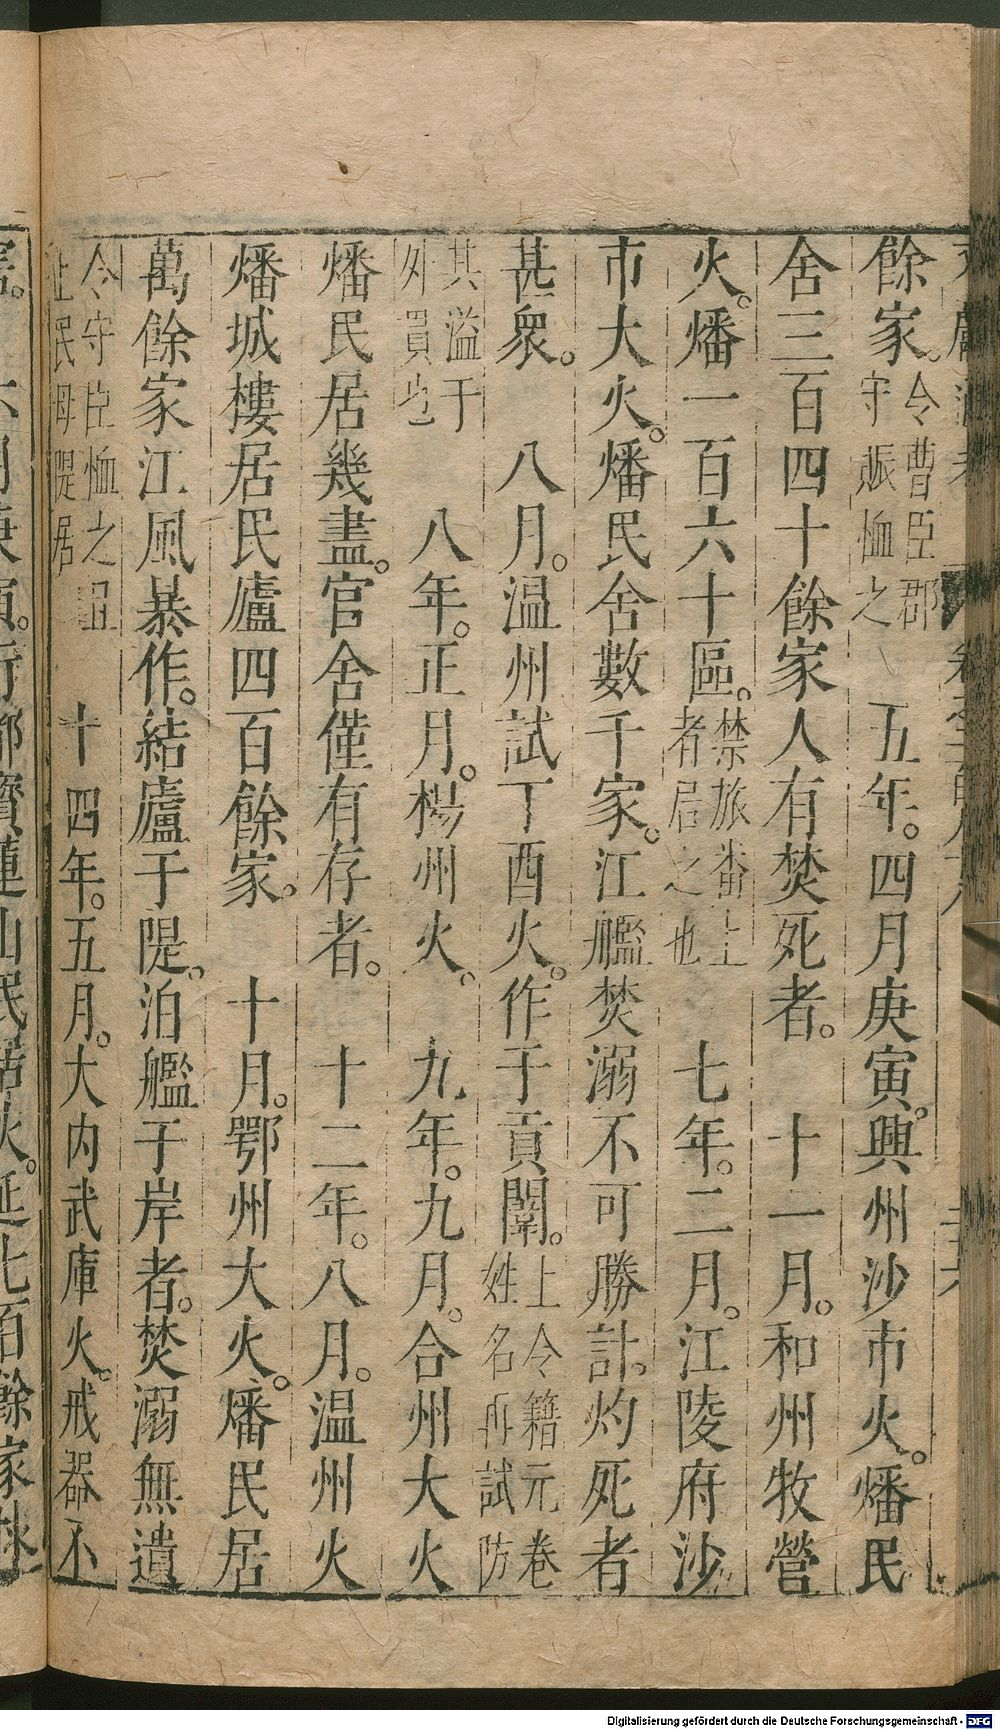 餘家。令曹臣郡守賑恤之　五年。四月庚寅。興州沙市火。燔民
舍三百四十餘家人有焚死者。　十一月。和州牧營
火。燔一百六十區。禁旅番上者居之也　七年。二月。江陵府沙
市大火。燔民舍數千家。江艦焚溺不可勝計。灼死者
甚衆。　八月。温州試丁酉火。作于貢闈。上令籍元卷姓名再試防
其溢于外買也　八年。正月。楊州火。　九年。九月。合州大火
燔民居幾盡。官舍僅有存者。　十二年。八月。温州火
燔城樓居民廬四百餘家。　十月。鄂州大火。燔民居
萬餘家江風暴作。結廬于隄。泊艦于岸者。焚溺無遺
令守臣恤之且止民毋隄居　十四年。五月。大内武庫火。戒器不
害。　六月庚寅。行都寶蓮山民居火。延七百餘家
Digitalisierung gefördert durch die Deutsche Forschungsgemeinschaft - DFG